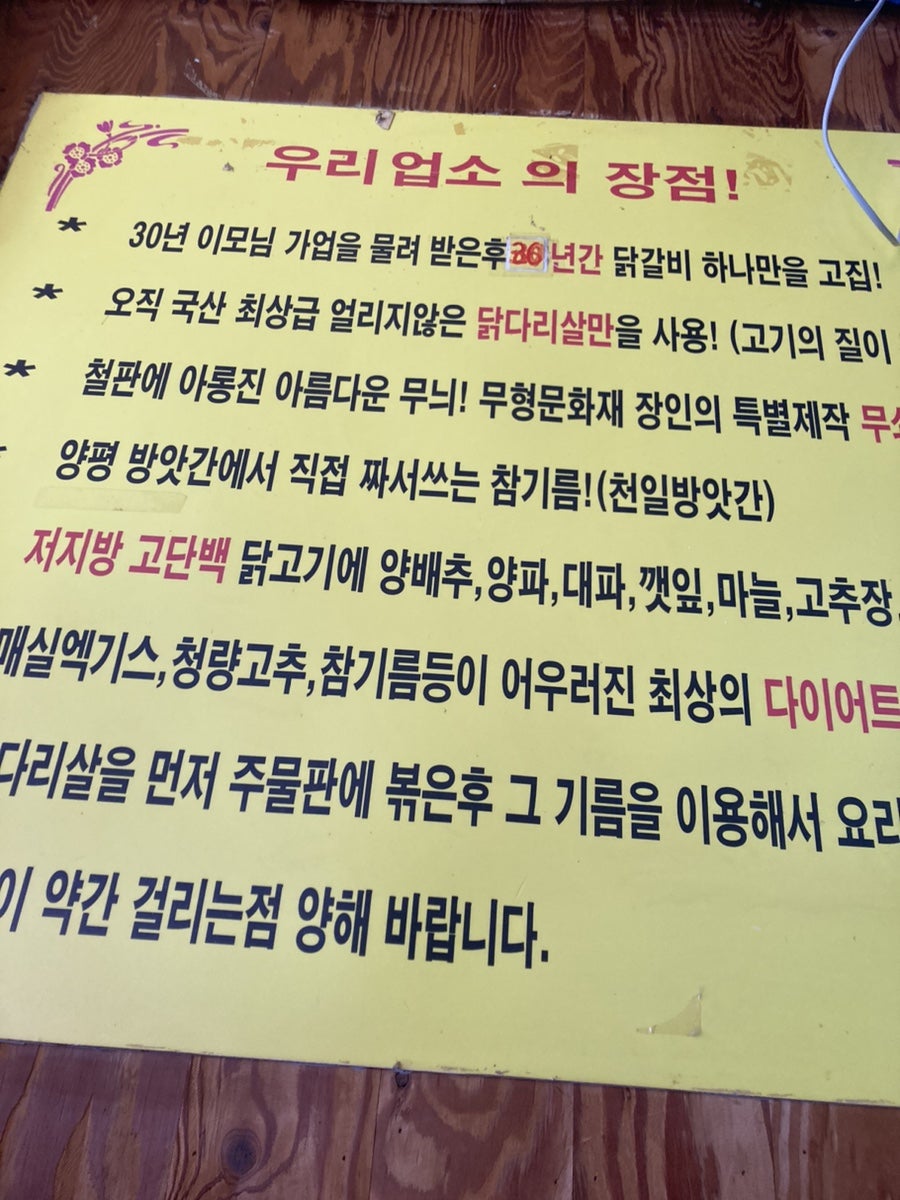 우리업소 의 장점!
* 30년 이모님 가업을 물려 받은후 36년간 닭갈비 하나만을 고집!
* 오직 국산 최상급 얼리지않은 닭다리살만을 사용! (고기의 질이
* 철판에 아롱진 아름다운 무늬! 무형문화재 장인의 특별제작 무쇠
양평 방앗간에서 직접 짜서쓰는 참기름!(천일방앗간)
저지방 고단백 닭고기에 양배추,양파,대파,깻잎,마늘,고추장,
매실엑기스,청량고추,참기름등이 어우러진 최상의 다이어트
다리살을 먼저 주물판에 볶은후 그 기름을 이용해서 요리
이 약간 걸리는점 양해 바랍니다.